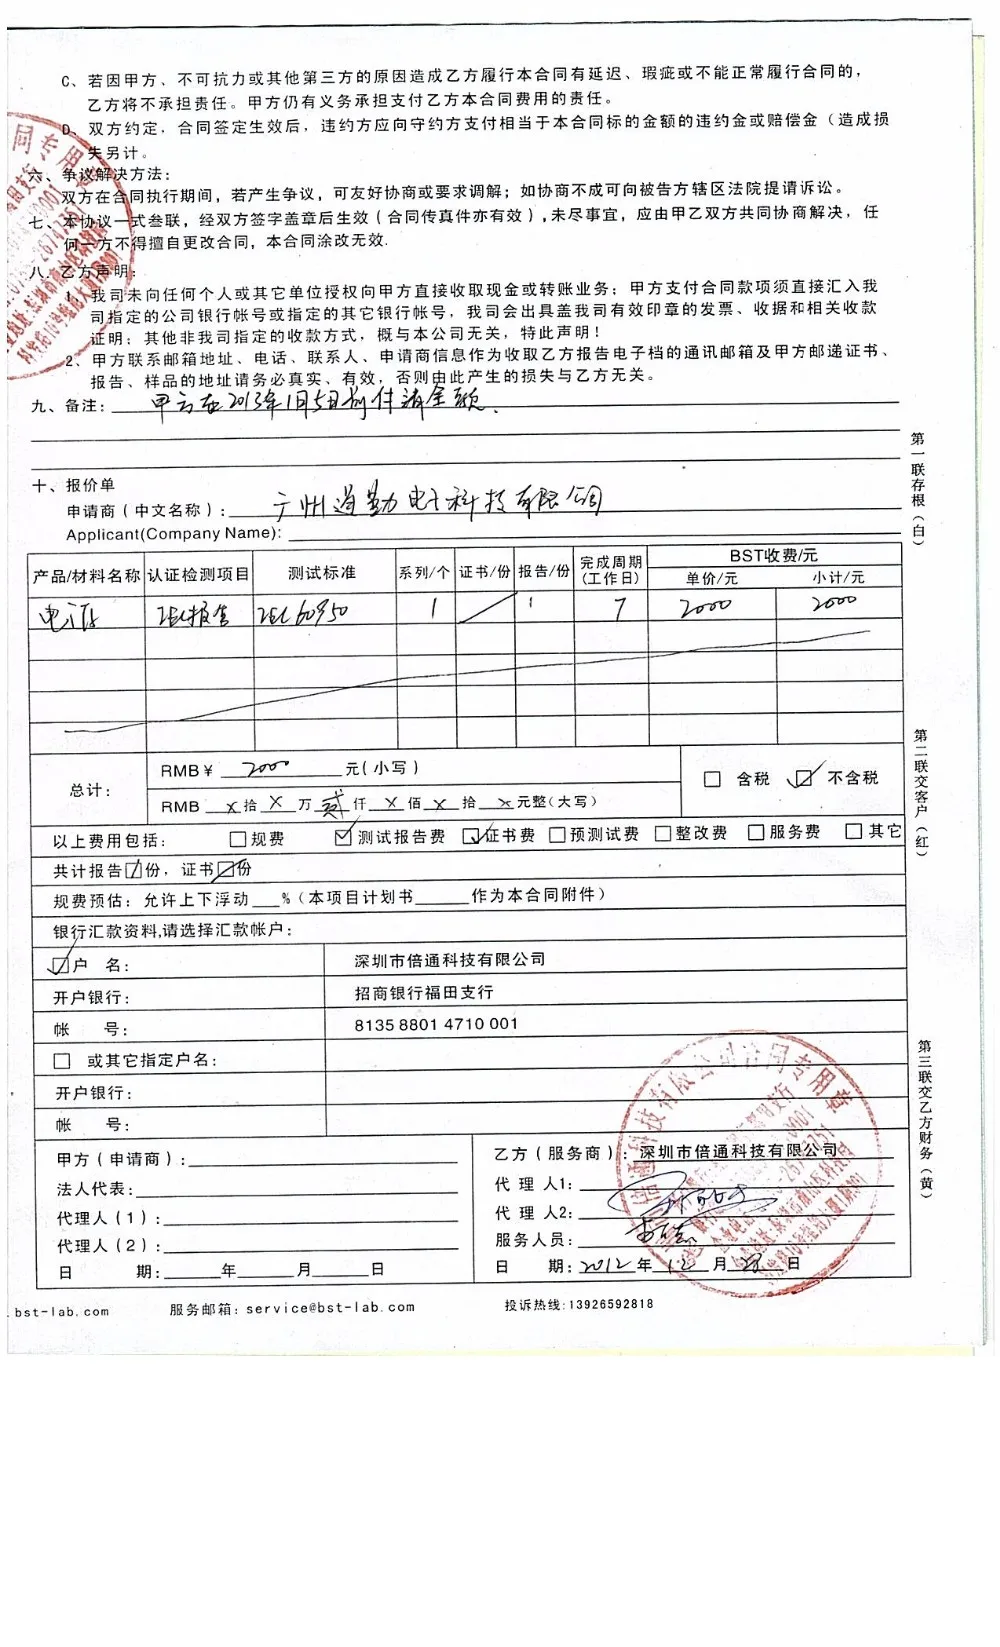 C、若因甲方、不可抗力或其他第三方的原因造成乙方履行本合同有延迟、瑕疵或不能正常履行合同的，
乙方将不承担责任。甲方仍有义务承担支付乙方本合同费用的责任。
D、双方约定，合同签定生效后，违约方应向守约方支付相当于本合同标的金额的违约金或赔偿金（造成损
失另计。
六、争议解决方法：
双方在合同执行期间，若产生争议，可友好协商或要求调解；如协商不成可向被告方辖区法院提请诉讼。
七、本协议一式叁联，经双方签字盖章后生效（合同传真件亦有效），未尽事宜，应由甲乙双方共同协商解决，任
何一方不得擅自更改合同，本合同涂改无效.
八、乙方声明：
1、我司未向任何个人或其它单位授权向甲方直接收取现金或转账业务；甲方支付合同款项须直接汇入我
司指定的公司银行帐号或指定的其它银行帐号，我司会出具盖我司有效印章的发票、收据和相关收款
证明；其他非我司指定的收款方式，概与本公司无关，特此声明！
2、甲方联系邮箱地址、电话、联系人、申请商信息作为收取乙方报告电子档的通讯邮箱及甲方邮递证书、
报告、样品的地址请务必真实、有效，否则由此产生的损失与乙方无关。
九、备注：甲方在2013年1月5日前付清全额.
十、报价单
申请商（中文名称）：广州道勤电子科技有限公司
Applicant(Company Name):
产品/材料名称 认证检测项目 测试标准 系列/个 证书/份 报告/份 完成周期(工作日) BST收费/元
单价/元 小计/元
IEC报告 IEC 60950 1 1 7 2000 2000
总计：
RMB¥ 2000 元(小写)
RMB X 拾 X 万 贰 仟 X 佰 X 拾 X 元整(大写)
含税 不含税
以上费用包括： 规费 测试报告费 证书费 预测试费 整改费 服务费 其它
共计报告1份，证书份
规费预估：允许上下浮动___%（本项目计划书______作为本合同附件）
银行汇款资料,请选择汇款帐户：
户 名： 深圳市倍通科技有限公司
开户银行： 招商银行福田支行
帐 号： 8135 8801 4710 001
或其它指定户名：
开户银行：
帐 号：
甲方（申请商）：
法人代表：
代理人（1）：
代理人（2）：
日 期：____年____月____日
乙方（服务商）：深圳市倍通科技有限公司
代 理 人1：
代 理 人2：
服务人员：
日 期：2012年12月28日
.bst-lab.com 服务邮箱：service@bst-lab.com 投诉热线:13926592818
第一联存根（白）
第二联交客户（红）
第三联交乙方财务（黄）